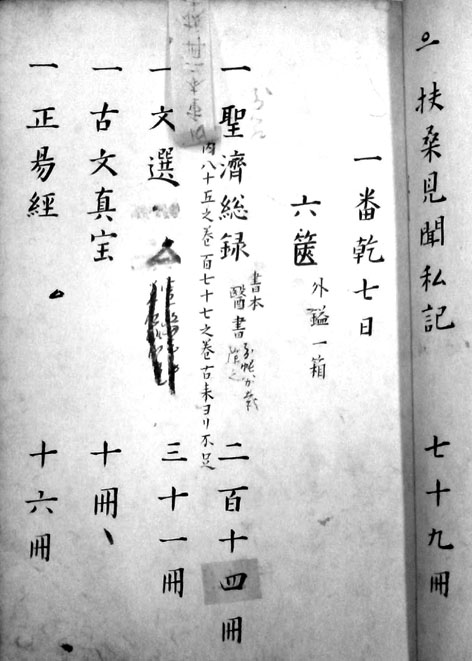 一 扶桑見聞私記 七十九冊
一番乾七日
六篋 外鎰一箱
一 聖済総録 書本 醫書 二百十四冊
内八十五之巻百七十七之巻古来ヨリ不足
一 文選 三十一冊
一 古文真宝 十冊
一 正易經 十六冊